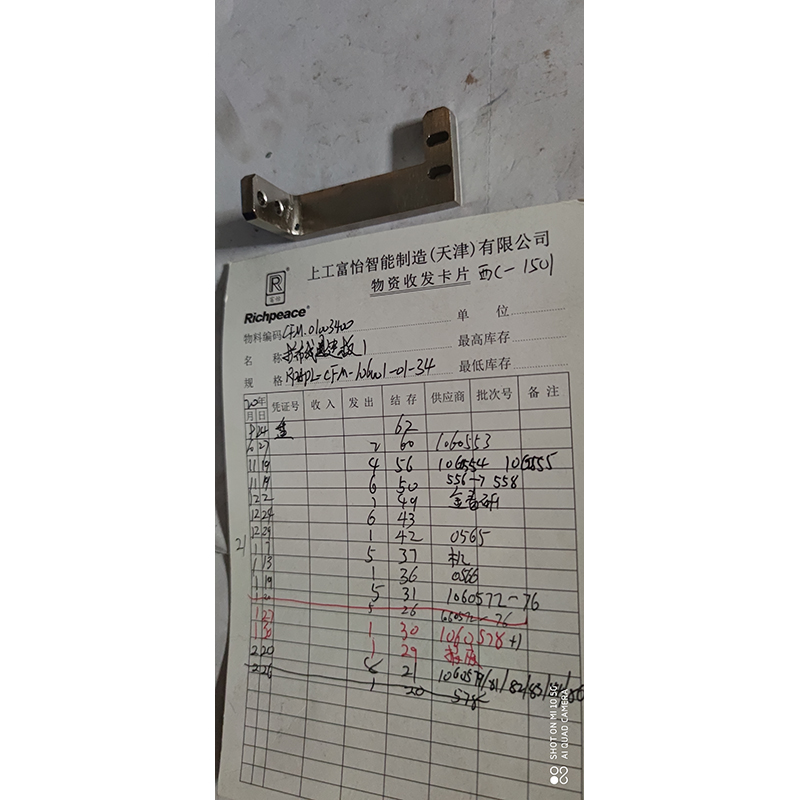 上工富怡智能制造(天津)有限公司
R
富怡
Richpeace
物资收发卡片 西C-1501
物料编码 CFM.01003400 单 位
名 称 板1 最高库存
规 格 CFM-106001-01-34 最低库存
20年 凭证号 收入 发出 结存 供应商 批次号 备注
月 日
24 盘 62
6 27 2 60 1060553
11 19 4 56 1060554 1060555
11 19 6 50 556→558
12 2 1 49
12 24 6 43
12 29 1 42 0565
21 1 7 5 37
1 13 1 36 0566
1 19 5 31 1060572-76
1 20 5 26 1060572-76
1 27 1 30 1060578+1
1 30 1 29
2 20 8 21 1060579/81/82/83/84/86
2 26 1 20 578
SHOT ON MI 10 5G
AI QUAD CAMERA